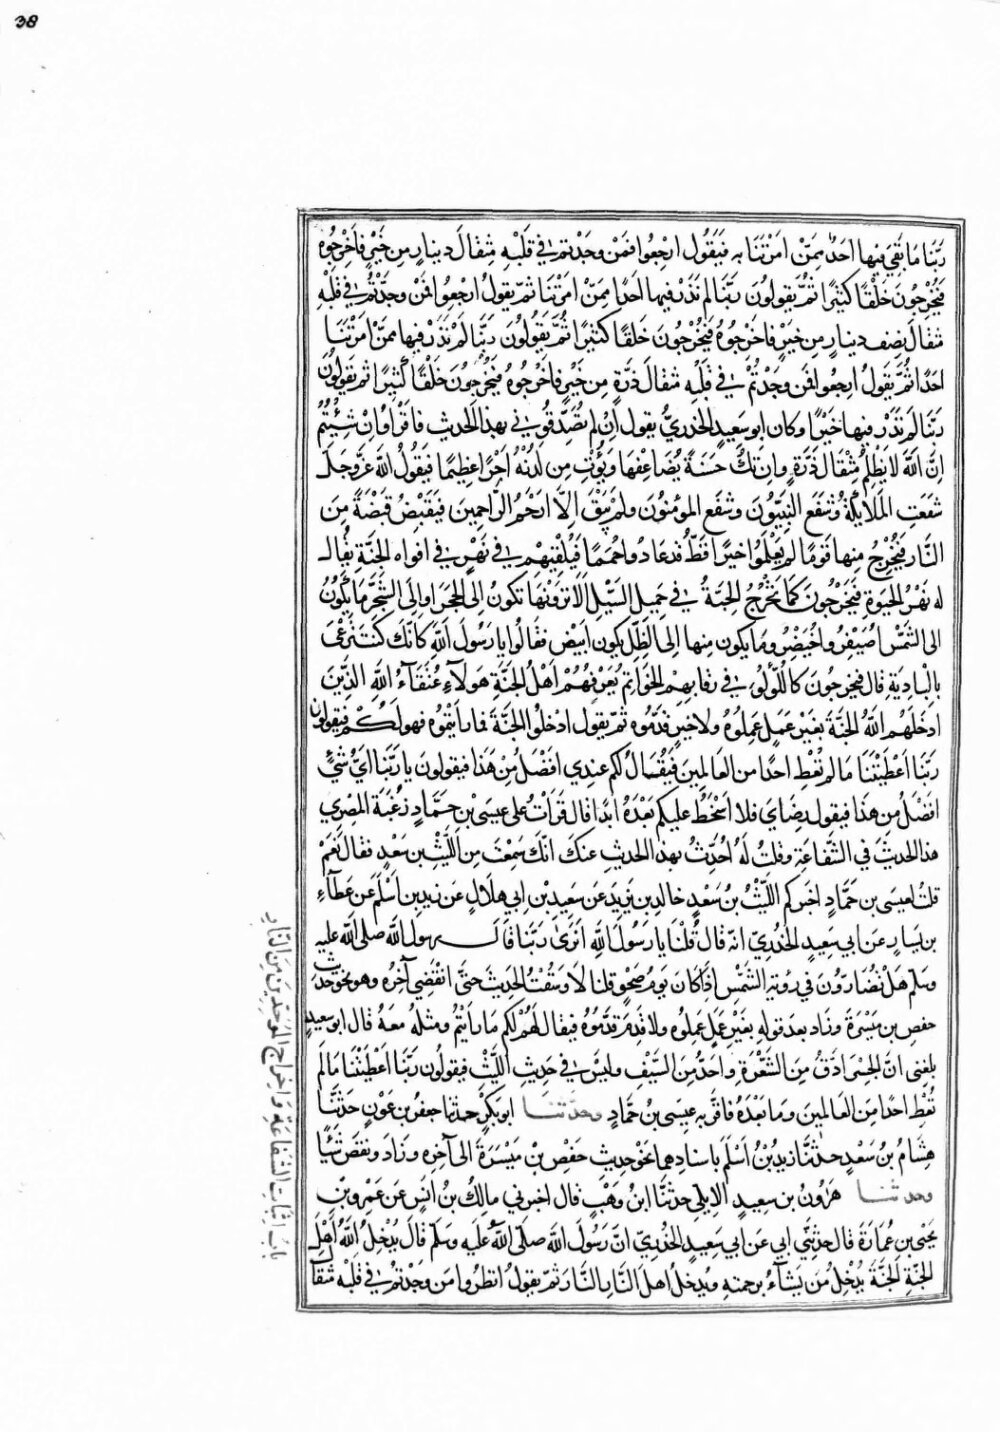 38
رَبَّنَا مَا بَقِيَ فِيهَا اَحَدٌ مِمَّنْ اَمَرْتَنَا بِهِ فَيَقُولُ ارْجِعُوا فَمَنْ وَجَدْتُمْ فِي قَلْبِهِ مِثْقَالَ دِينَارٍ مِنْ خَيْرٍ فَاَخْرِجُوهُ
فَيُخْرِجُونَ خَلْقًا كَثِيرًا ثُمَّ يَقُولُونَ رَبَّنَا لَمْ نَذَرْ فِيهَا اَحَدًا مِمَّنْ اَمَرْتَنَا ثُمَّ يَقُولُ ارْجِعُوا فَمَنْ وَجَدْتُمْ فِي قَلْبِهِ
مِثْقَالَ نِصْفِ دِينَارٍ مِنْ خَيْرٍ فَاَخْرِجُوهُ فَيُخْرِجُونَ خَلْقًا كَثِيرًا ثُمَّ يَقُولُونَ رَبَّنَا لَمْ نَذَرْ فِيهَا مِمَّنْ اَمَرْتَنَا
اَحَدًا ثُمَّ يَقُولُ ارْجِعُوا فَمَنْ وَجَدْتُمْ فِي قَلْبِهِ مِثْقَالَ ذَرَّةٍ مِنْ خَيْرٍ فَاَخْرِجُوهُ فَيُخْرِجُونَ خَلْقًا كَثِيرًا ثُمَّ يَقُولُونَ
رَبَّنَا لَمْ نَذَرْ فِيهَا خَيْرًا وَكَانَ ابو سَعِيدٍ الْخُدْرِيُّ يقول اِنْ لَمْ تُصَدِّقُونِي بهذا الْحَدِيثِ فَاقْرَاُوا اِنْ شِئْتُمْ
اِنَّ اللَّهَ لَا يَظْلِمُ مِثْقَالَ ذَرَّةٍ وَاِنْ تَكُ حَسَنَةً يُضَاعِفْهَا وَيُؤْتِ مِنْ لَدُنْهُ اَجْرًا عَظِيمًا فَيَقُولُ اللَّه عَزَّ وَجَلَّ
شَفَعَتِ الْمَلَائِكَةُ وَشَفَعَ النَّبِيُّونَ وَشَفَعَ الْمُؤْمِنُونَ وَلَمْ يَبْقَ اِلَّا اَرْحَمُ الرَّاحِمِينَ فَيَقْبِضُ قَبْضَةً مِنَ
النَّارِ فَيُخْرِجُ مِنْهَا قَوْمًا لَمْ يَعْمَلُوا خَيْرًا قَطُّ قَدْ عَادُوا حُمَمًا فَيُلْقِيهِمْ فِي نَهْرٍ فِي افواه الْجَنَّةِ يُقَالُ
لَهُ نَهْرُ الْحَيَوةِ فَيَخْرُجُونَ كَمَا تَخْرُجُ الْحِبَّةُ فِي حَمِيلِ السَّيْلِ اَلَا تَرَوْنَهَا تَكُونُ اِلَى الْحَجَرِ اَو اِلَى الشَّجَرِ مَا يَكُونُ
الى الشَّمْسِ اُصَيْفِرُ وَاُخَيْضِرُ وَمَا يَكُونُ مِنْهَا اِلَى الظِّلِّ يَكُونُ اَبْيَضَ فَقَالُوا يَا رَسُولَ اللَّهِ كَاَنَّكَ كُنْتَ تَرْعَى
بِالْبَادِيَةِ قَالَ فَيَخْرُجُونَ كَاللُّؤْلُؤِ فِي رِقَابِهِمُ الْخَوَاتِمُ يَعْرِفُهُمْ اَهْلُ الْجَنَّةِ هَؤُلَاءِ عُتَقَاءُ اللَّهِ الَّذِينَ
ادْخَلَهُمُ اللَّهُ الْجَنَّةَ بِغَيْرِ عَمَلٍ عَمِلُوهُ وَلَا خَيْرٍ قَدَّمُوهُ ثُمَّ يَقُولُ ادْخُلُوا الْجَنَّةَ فَمَا رَاَيْتُمُوهُ فَهُوَ لَكُمْ فَيَقُولُونَ
رَبَّنَا اَعْطَيْتَنَا مَا لَمْ تُعْطِ اَحَدًا مِنَ الْعَالَمِينَ فَيُقَالُ لَكُمْ عِنْدِي اَفْضَلُ مِنْ هَذَا فَيَقُولُونَ يَا رَبَّنَا اَيُّ شَيْءٍ
افْضَلُ مِنْ هَذَا فَيَقُولُ رِضَايَ فَلَا اَسْخَطُ عَلَيْكُمْ بَعْدَهُ اَبَدًا قَالَ قَرَاْتُ عَلَى عِيسَى بْنِ حَمَّادٍ زُغْبَةَ الْمِصْرِي
هذا الْحَدِيثَ فِي الشَّفَاعَةِ وَقُلْتُ لَهُ اُحَدِّثُ بهذا الْحَدِيثِ عَنْكَ اَنَّكَ سَمِعْتَ مِنَ اللَّيْثِ بن سَعْدٍ فقال نَعَمْ
قلت لعيسى بن حَمَّادٍ اخبركم اللَّيْثُ بْنُ سَعْدٍ خَالِدِ بن يَزِيدَ عَنْ سَعِيدِ بْنِ اَبِي هِلَالٍ عَنْ زيد بن اَسْلَمَ عَنْ عَطَاءِ
بن يَسَارٍ عَنْ ابي سَعِيدٍ الْخُدْرِيِّ انه قَالَ قُلْنَا يَا رَسُولَ اللَّهِ اَنَرَى رَبَّنَا قَالَ رسول اللَّه صلى اللَّه عليه
وسلم هَلْ تُضَارُّونَ فِي رُؤْيَةِ الشَّمْسِ اِذَا كَانَ يَوْمُ صَحْوٍ قلنا لَا وَسُقْتُ الْحَدِيثَ حَتَّى انْقَضَى آخِرُهُ وهو نحو حديث
حفص بن مَيْسَرَةَ وَزَادَ بَعْدَ قَوْلِهِ بِغَيْرِ عَمَلٍ عَمِلُوهُ وَلَا قَدَمٍ قَدَّمُوهُ فَيُقَالُ لَهُمْ لَكُمْ مَا رَاَيْتُمْ وَمِثْلُهُ مَعَهُ قَالَ ابو سعيد
بلغنى اَنَّ الْجِسْرَ اَدَقُّ مِنَ الشَّعْرَةِ وَاَحَدُّ مِنَ السَّيْفِ وَلَيْسَ فِي حَدِيثِ اللَّيْثِ فَيَقُولُونَ رَبَّنَا اَعْطَيْتَنَا مَا لَمْ
تُعْطِ احدًا مِنَ الْعَالَمِينَ وَمَا بَعْدَهُ فَاَقَرَّ بِهِ عِيسَى بْنُ حَمَّادٍ وحدثنا ابو بَكْرٍ حدثنا جعفر بن عَوْنٍ حَدَّثَنَا
هِشَامُ بْنُ سَعْدٍ حَدَّثَنَا زَيْدُ بْنُ اَسْلَمَ بِاِسْنَادِهِمَا نَحْوَ حَدِيثِ حَفْصِ بْنِ مَيْسَرَةَ الى آخِرِهِ وَزَادَ وَنَقَصَ شَيْئًا
وحدثنا هَرُونُ بن سعِيدٍ الاَيْلِي حَدَّثَنَا ابْنُ وَهْبٍ قَالَ اخبرني مالِكُ بْنُ اَنَسٍ عَنْ عَمْرِو بْنِ
يَحْيَى بن عُمَارَةَ قَالَ حَدَّثَنِي ابي عَنْ ابي سَعِيدٍ الْخُدْرِيِّ انَّ رَسُولَ اللَّه صَلَّى اللَّهُ عَلَيْهِ وَسَلَّمَ قَالَ يُدْخِلُ اللَّهُ اَهْلَ
الْجَنَّةِ الْجَنَّةَ يُدْخِلُ مَنْ يَشَاءُ بِرَحْمَتِهِ وَيُدْخِلُ اهل النَّارِ النَّارَ ثُمَّ يَقُولُ انْظُرُوا مَنْ وَجَدْتُمْ فِي قَلْبِهِ مِثْقَالَ
باب اثبات الشفاعة واخراج الموحدين من النار